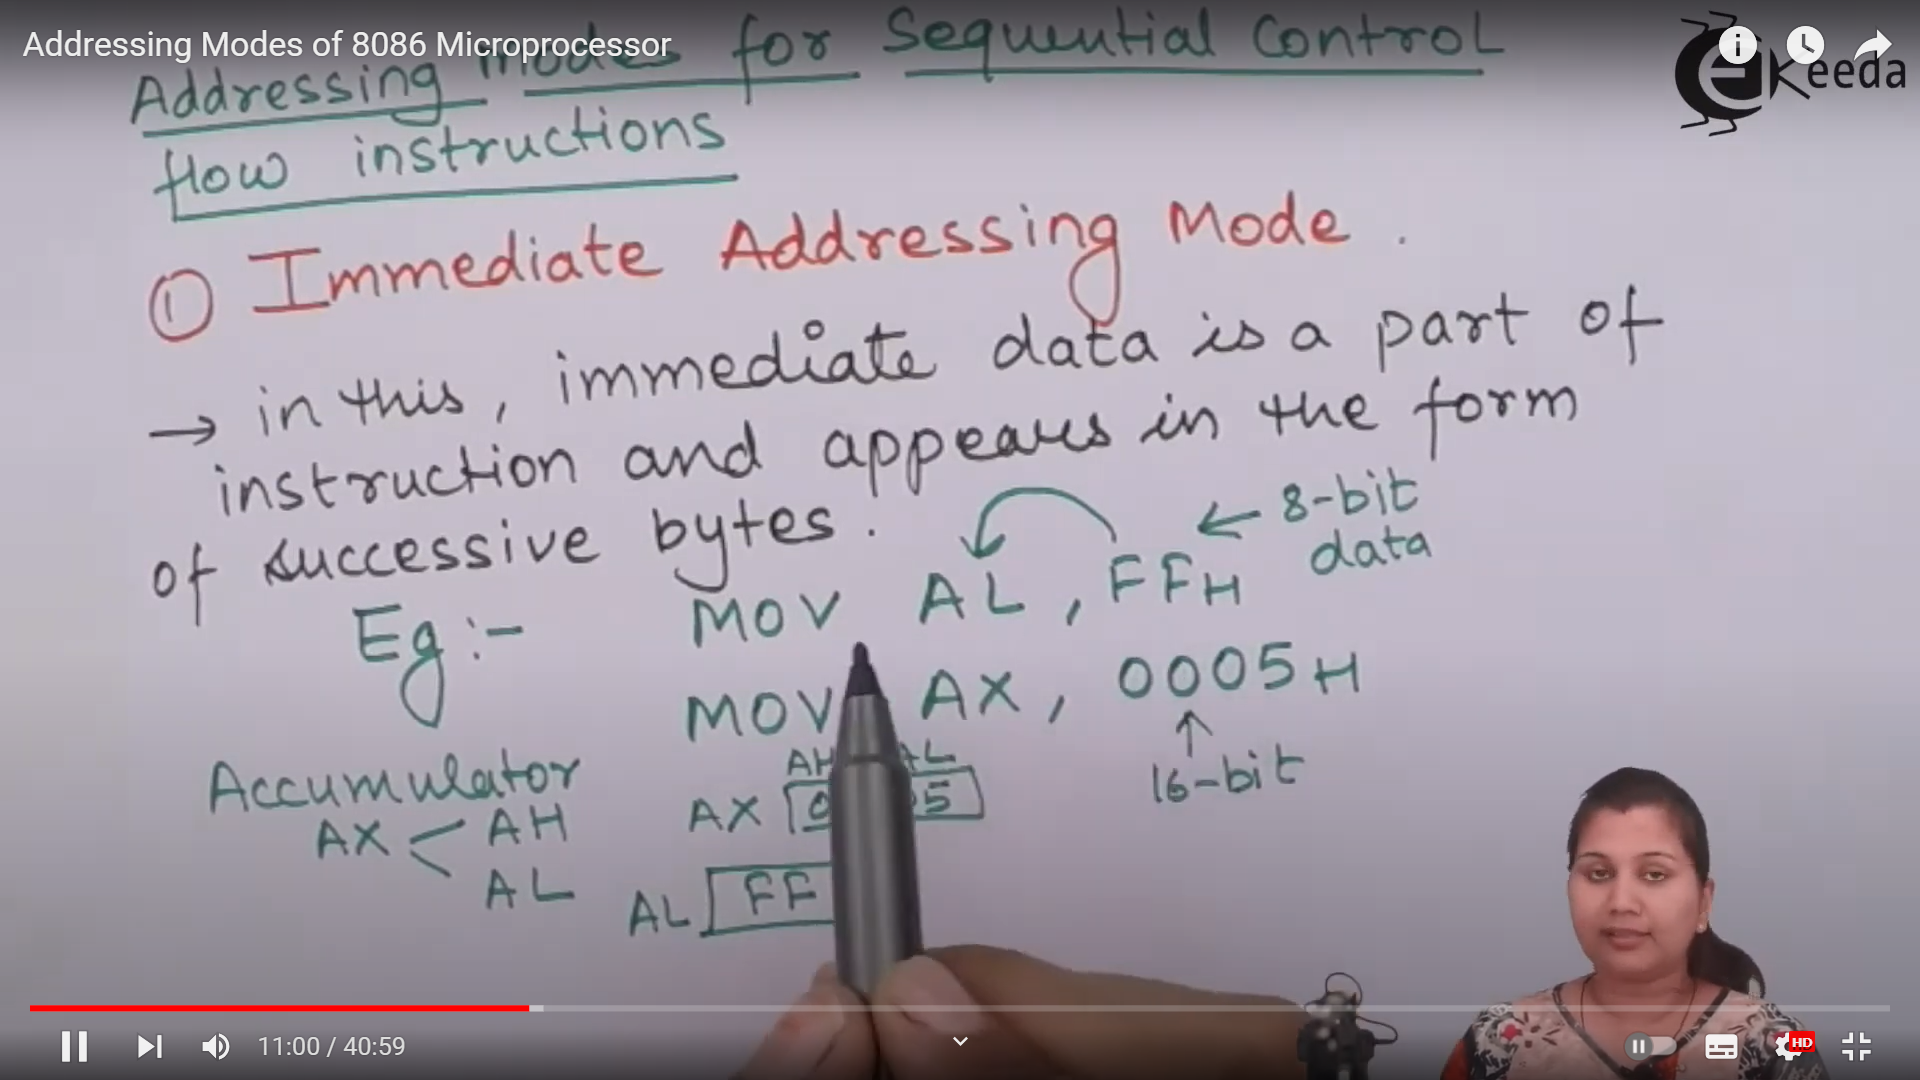 Addressing Modes of 8086 Microprocessor
Addressing modes for Sequential Control
flow instructions
eKeeda
① Immediate Addressing Mode.
→ in this, immediate data is a part of
instruction and appears in the form
of successive bytes.
← 8-bit
data
Eg:- MOV AL, FFH
MOV AX, 0005H
↑
16-bit
Accumulator
AX AH
AL
AH AL
AX 5
AL FF
11:00 / 40:59
HD